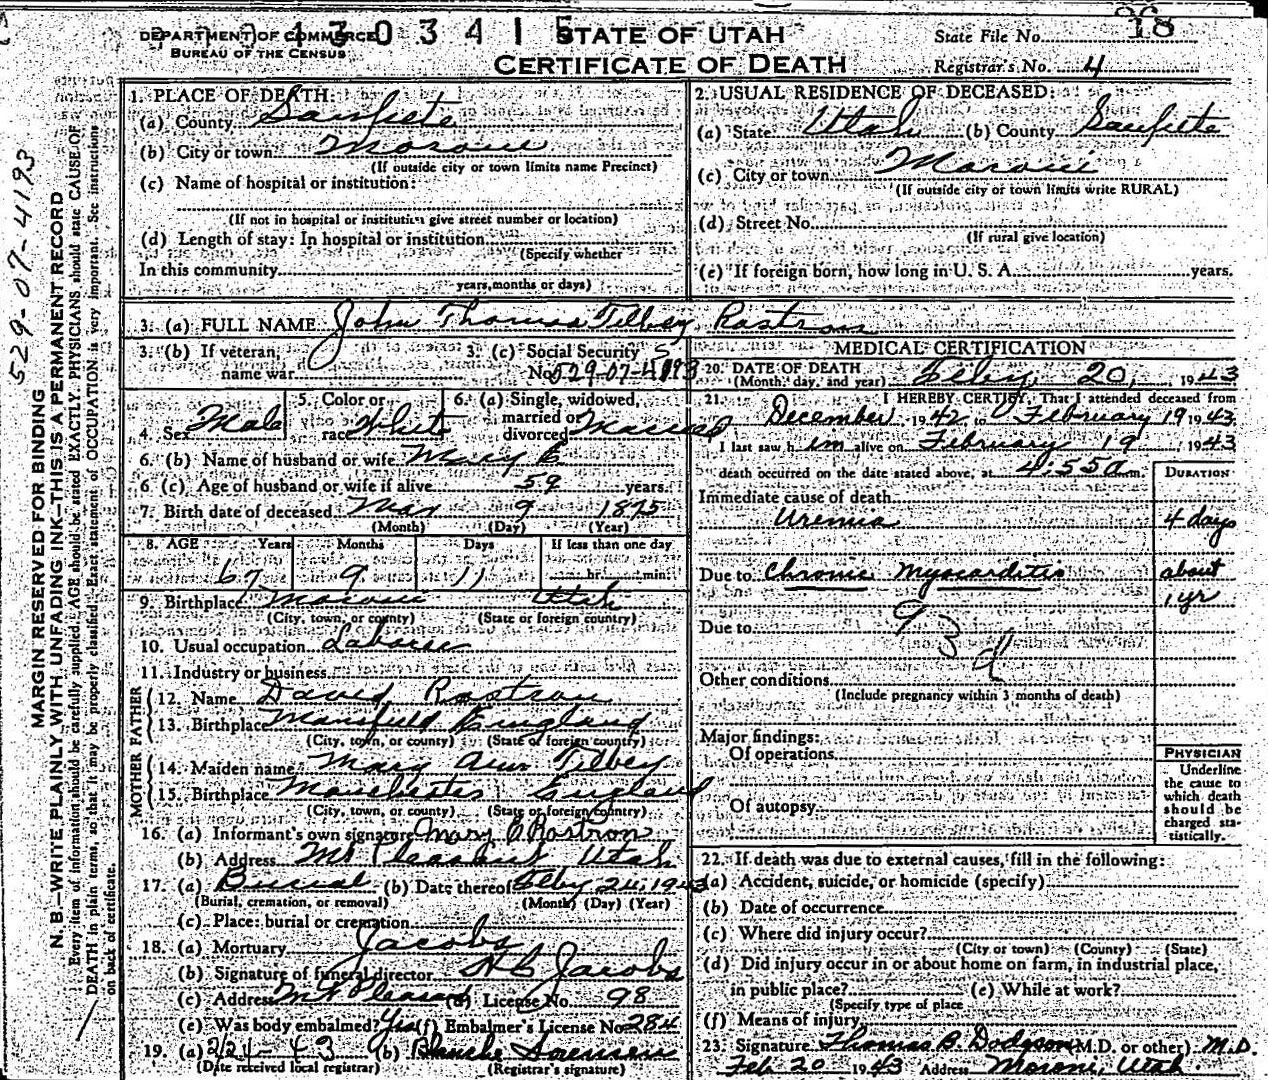 DEPARTMENT OF COMMERCE
BUREAU OF THE CENSUS
4303415
STATE OF UTAH
CERTIFICATE OF DEATH
State File No. 78
Registrar's No. 4
529-07-4193
MARGIN RESERVED FOR BINDING
N. B.—WRITE PLAINLY WITH UNFADING INK—THIS IS A PERMANENT RECORD
Every item of information should be carefully supplied. AGE should be stated EXACTLY. PHYSICIANS should state CAUSE OF
DEATH in plain terms, so that it may be properly classified. Exact statement of OCCUPATION is very important. See instructions
on back of certificate.
1. PLACE OF DEATH:
(a) County Sanpete
(b) City or town Moroni
(If outside city or town limits name Precinct)
(c) Name of hospital or institution:
(If not in hospital or institution give street number or location)
(d) Length of stay: In hospital or institution
(Specify whether
In this community
years, months or days)
2. USUAL RESIDENCE OF DECEASED:
(a) State Utah (b) County Sanpete
(c) City or town Moroni
(If outside city or town limits write RURAL)
(d) Street No.
(If rural give location)
(e) If foreign born, how long in U. S. A. years.
3. (a) FULL NAME John Thomas Tilbey Rostron
3. (b) If veteran, name war
3. (c) Social Security No. 529-07-4193
4. Sex Male
5. Color or race White
6. (a) Single, widowed, married or divorced Married
6. (b) Name of husband or wife Mary E
6. (c) Age of husband or wife if alive 59 years.
7. Birth date of deceased May 9 1875
(Month) (Day) (Year)
8. AGE Years Months Days If less than one day
67 9 11 hr. min.
9. Birthplace Moroni Utah
(City, town, or county) (State or foreign country)
10. Usual occupation Laborer
11. Industry or business
FATHER
12. Name David Rostron
13. Birthplace Mansfield England
(City, town, or county) (State or foreign country)
MOTHER
14. Maiden name Mary Ann Tilbey
15. Birthplace Manchester England
(City, town, or county) (State or foreign country)
16. (a) Informant's own signature Mary E Rostron
(b) Address Mt Pleasant Utah
17. (a) Burial (b) Date thereof Feby 24, 1943
(Burial, cremation, or removal) (Month) (Day) (Year)
(c) Place: burial or cremation
18. (a) Mortuary Jacobs
(b) Signature of funeral director H C Jacobs
(c) Address Mt Pleasant (d) License No. 98
(e) Was body embalmed? Yes (f) Embalmer's License No. 284
19. (a) 2/21-43 (b) Blanche Sorensen
(Date received local registrar) (Registrar's signature)
MEDICAL CERTIFICATION
20. DATE OF DEATH
(Month, day, and year) Feby 20, 1943
21. I HEREBY CERTIFY, That I attended deceased from
December 1942 to February 19 1943
I last saw him alive on February 19 1943
death occurred on the date stated above, at 4:55 a m.
DURATION
Immediate cause of death
Uremia 4 days
Due to Chronic Myocarditis about
1 yr
Due to
93 d
Other conditions
(Include pregnancy within 3 months of death)
Major findings:
Of operations
Of autopsy
PHYSICIAN
Underline
the cause to
which death
should be
charged sta-
tistically.
22. If death was due to external causes, fill in the following:
(a) Accident, suicide, or homicide (specify)
(b) Date of occurrence
(c) Where did injury occur?
(City or town) (County) (State)
(d) Did injury occur in or about home on farm, in industrial place,
in public place? (e) While at work?
(Specify type of place
(f) Means of injury
23. Signature Thomas B. Dodgson (M.D. or other) M.D.
Feb 20 1943 Address Moroni, Utah.